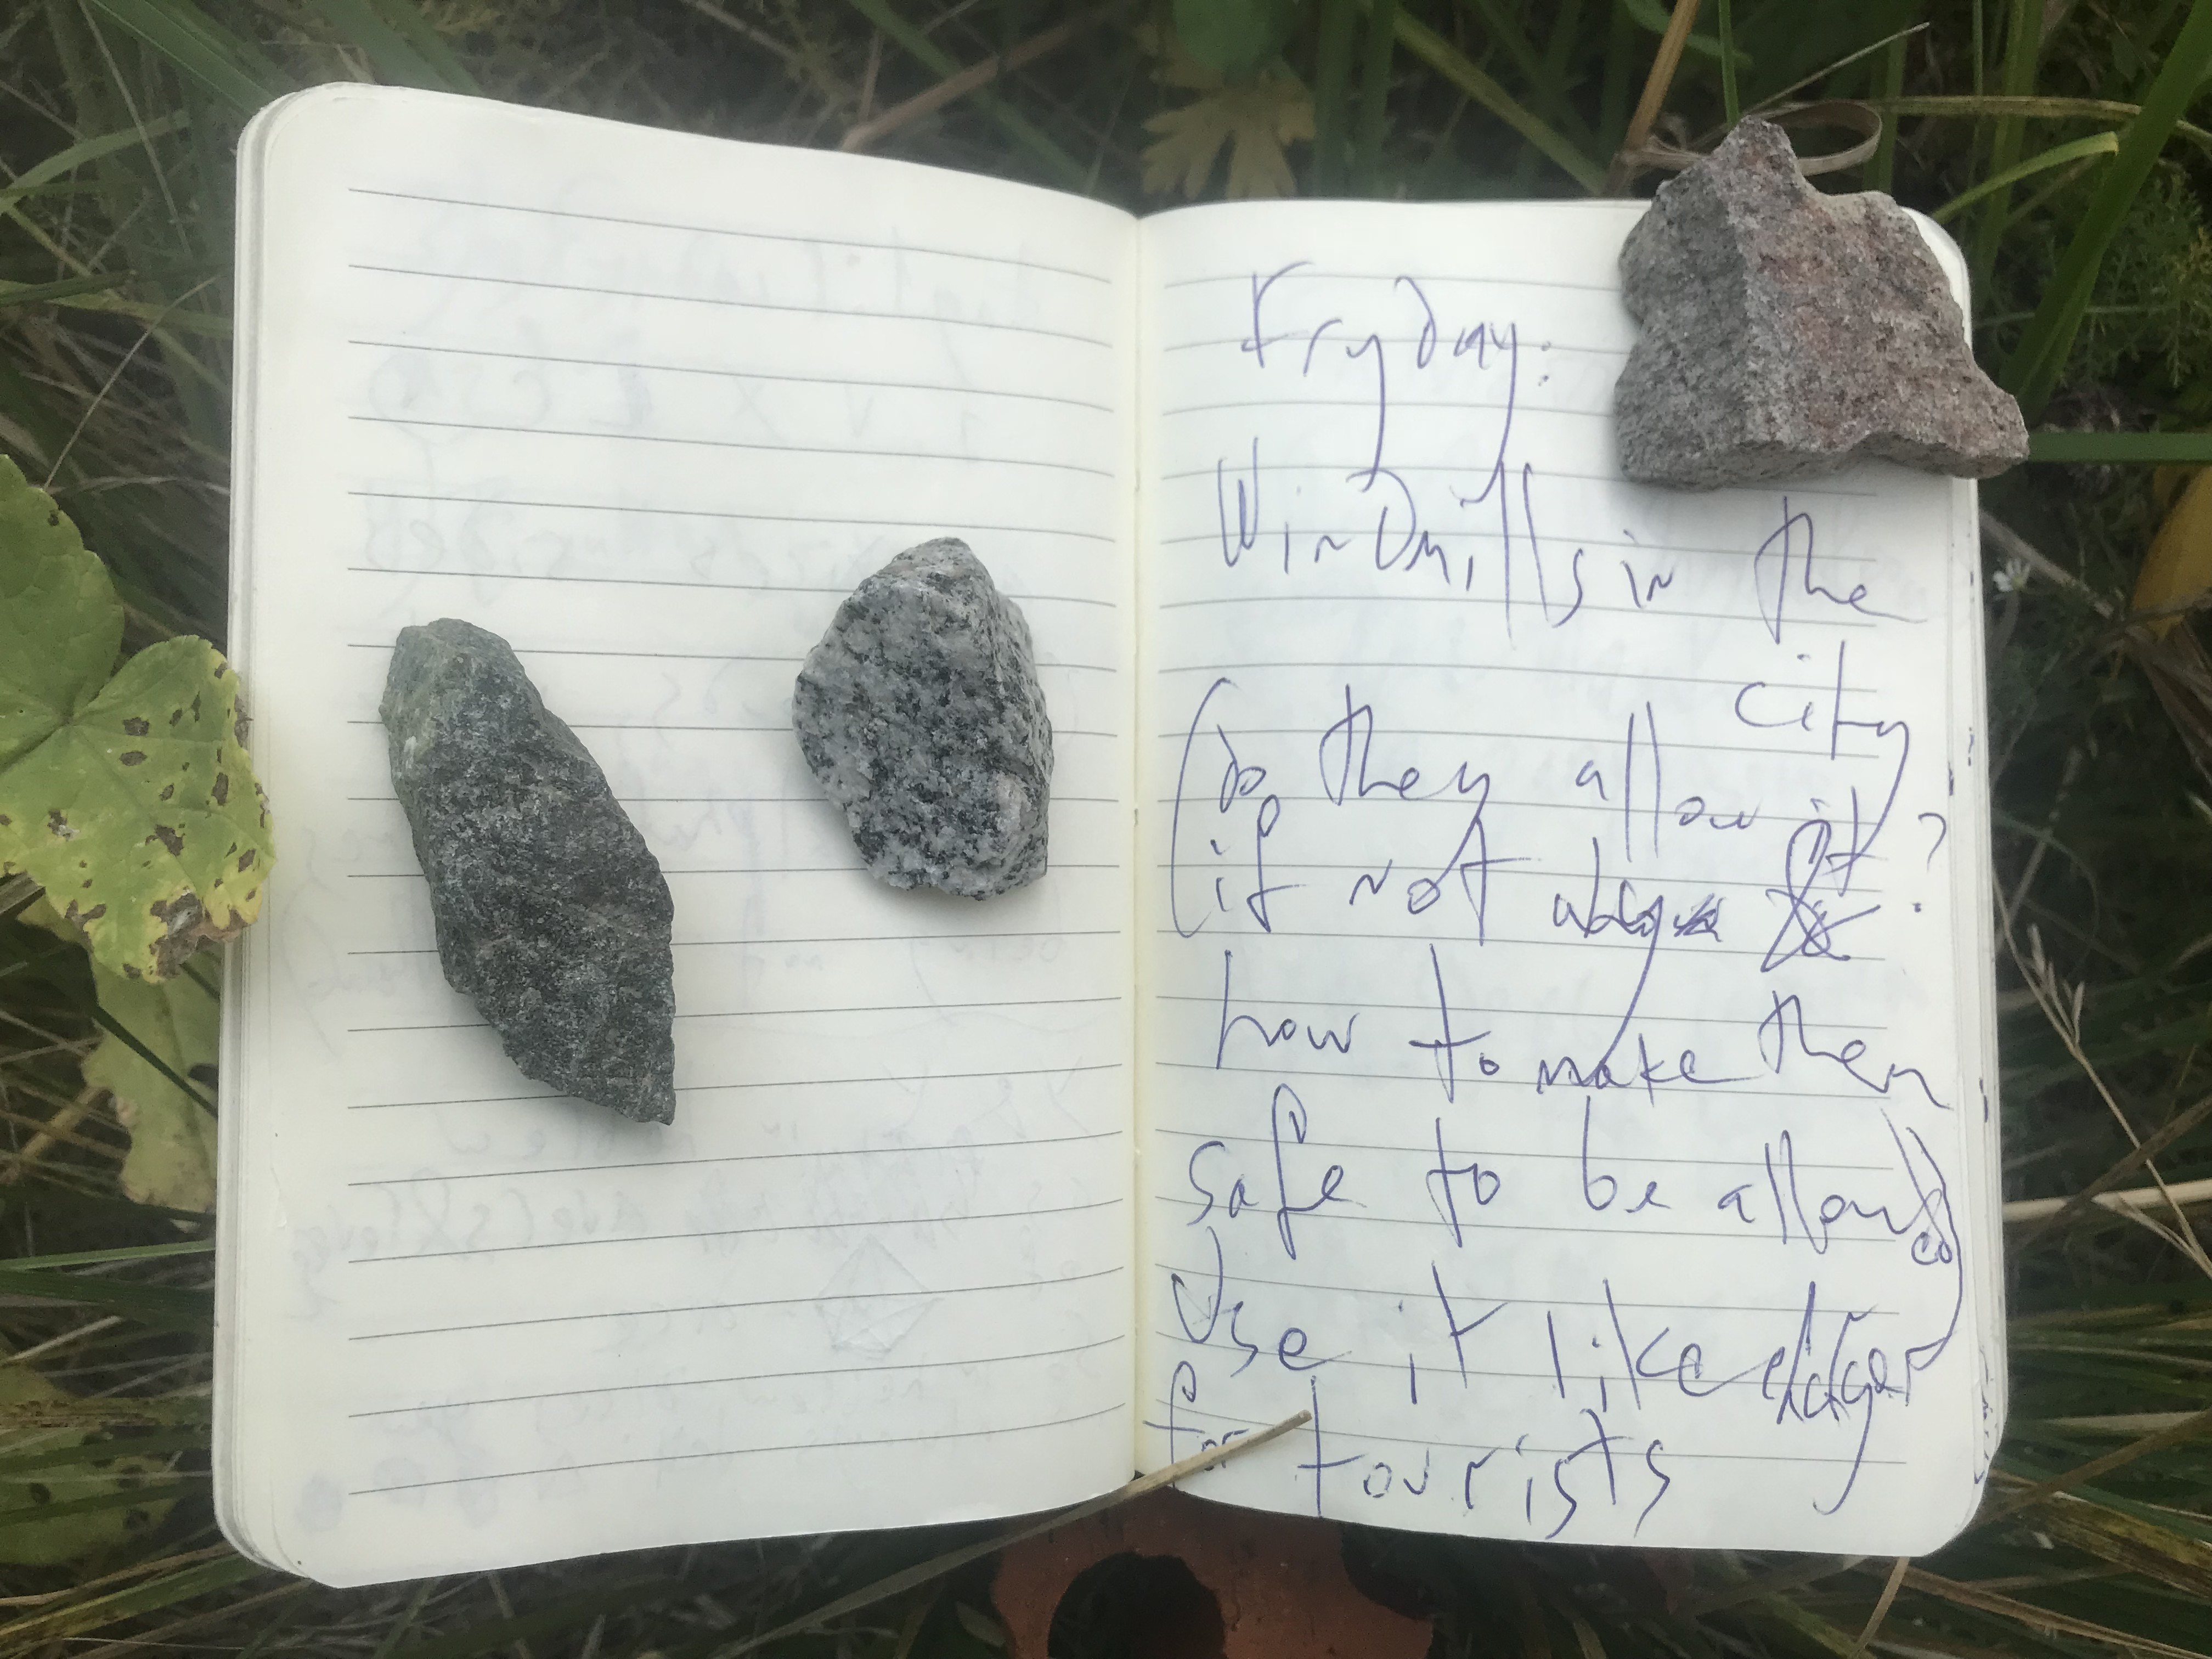 Fryday:
WinDmills in the
city
Do they allow it?
(if not why &
how to make them
safe to be allowed)
Use it like
for tourists